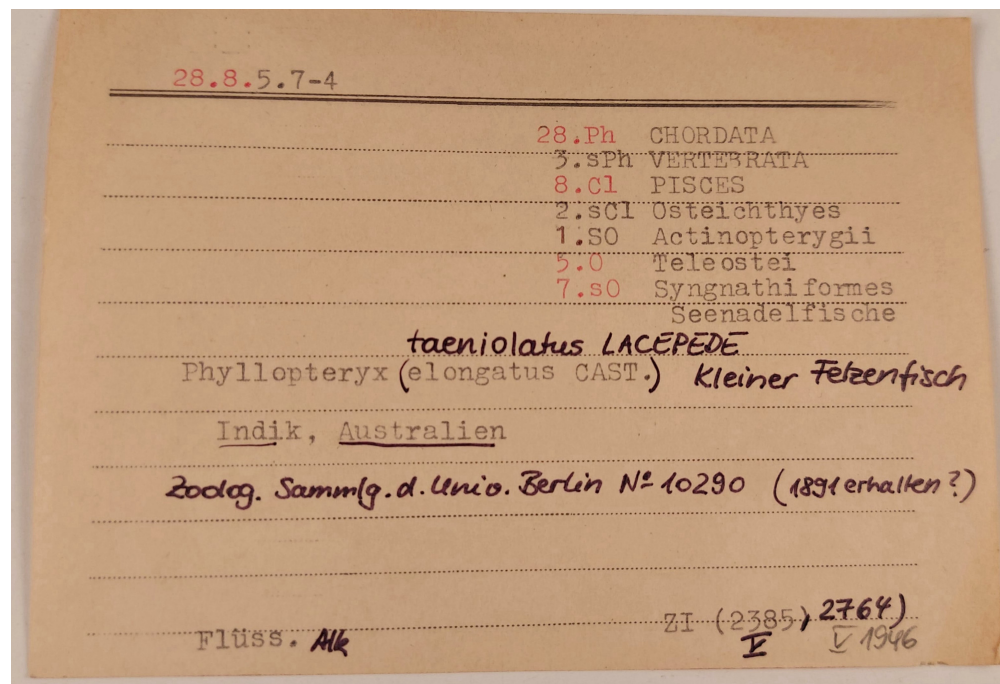 28.8.5.7-4
28.Ph CHORDATA
3.sPh VERTEBRATA
8.Cl PISCES
2.sCl Osteichthyes
1.SO Actinopterygii
5.O Teleostei
7.sO Syngnathiformes
Seenadelfische
taeniolatus LACEPEDE
Phyllopteryx (elongatus CAST.) Kleiner Fetzenfisch
Indik, Australien
Zoolog. Sammlg. d. Univ. Berlin Nº 10290 (1891 erhalten?)
Flüss. Alk ZI (2385), 2764)
V V 1946